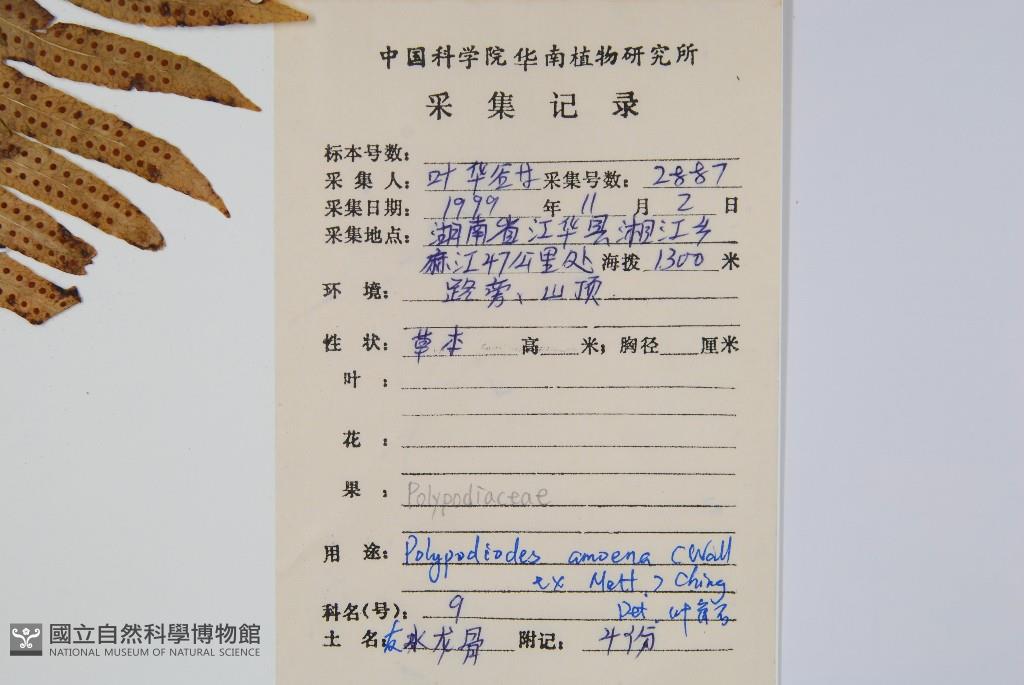 中国科学院华南植物研究所
采集记录
标本号数:
采集人: 叶华谷 采集号数: 2887
采集日期: 1999 年 11 月 2 日
采集地点: 湖南省江华县湘江乡
麻江47公里处 海拨 1300 米
环境: 路旁、山顶
性状: 草本 高 米; 胸径 厘米
叶:
花:
果: Polypodiaceae
用途: Polypodiodes amoena (Wall
ex Mett.) Ching
科名(号): 9 Det. 叶
土名: 友水龙骨 附记: 4份
國立自然科學博物館
NATIONAL MUSEUM OF NATURAL SCIENCE